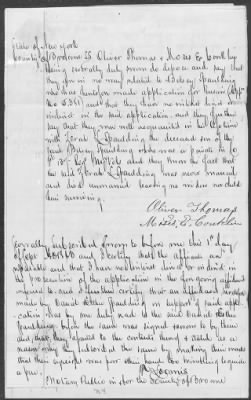 State of New York
County of Broome SS Oliver Thomas & Moses E Conklin
being severally duly sworn do depose and say that
they are in no way related to Betsey Spaulding
who has heretofore made application for pension (App
No and that they have no interest direct or
indirect in the said application, and they further
say that they were well acquainted in his lifetime
with Spaulding the deceased son of the
said Betsey Spaulding who was a private in Co
B Regt Vols and they know the fact that
the said Spaulding was never married
and died unmarried leaving no widow no child
him surviving.
Oliver Thomas
Moses E. Conklin
Severally subscribed & sworn to before me this 1st day
of Sept and I certify that the affiants are
respectable and that I have no interest direct or indirect in
the prosecution of the application in the foregoing affidavit
referred to. and I further certify that an affidavit
made by Spaulding in support of said appli
cation that by me duly read to the said
Spaulding before the same was signed & sworn to by them
and that they appeared to the contents thereof & add as a
reason why they subscribed the same by making their marks
that their eyesight was poor & their hand too trembling to guide
a pen.
Loomis
Notary Public in & for the County of Broome